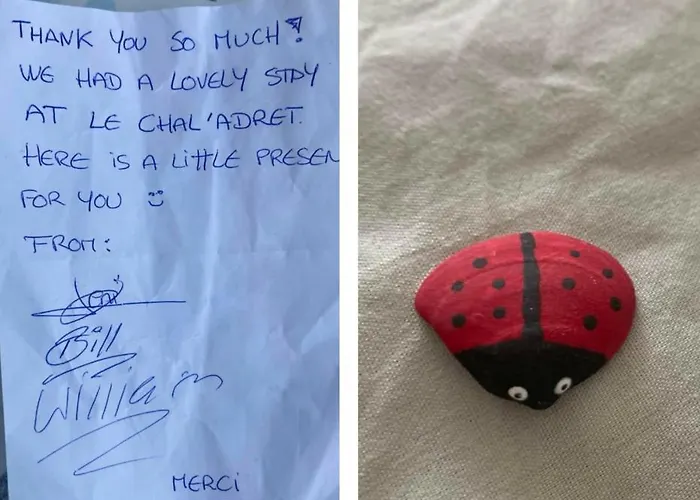 THANK YOU SO MUCH!
WE HAD A LOVELY STAY
AT LE CHAL'ADRET.
HERE IS A LITTLE PRESEN
FOR YOU
FROM:
Bill
William
MERCI